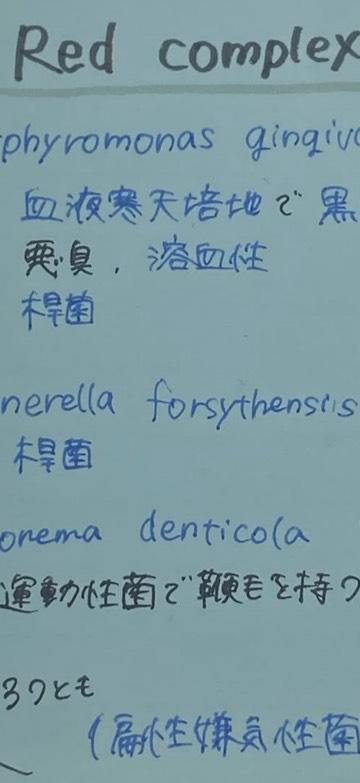 Red complex
phyromonas gingiva
血液寒天培地で黒
悪臭, 溶血性
桿菌
nerella forsythensis
桿菌
onema denticola
運動性菌で鞭毛を持つ
3つとも
(偏性嫌気性菌